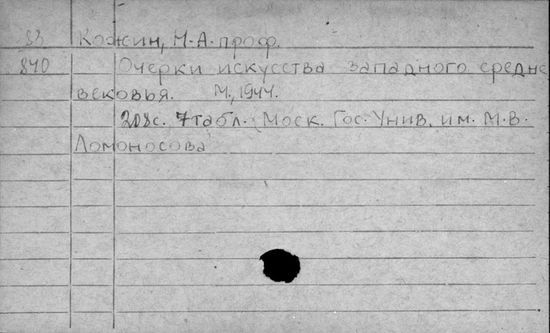 83 Кожин, М.А. проф.
840 Очерки искусства западного средне
вековья. М., 1944.
208с. 7табл. (Моск. Гос. Унив. им. М.В.
Ломоносова